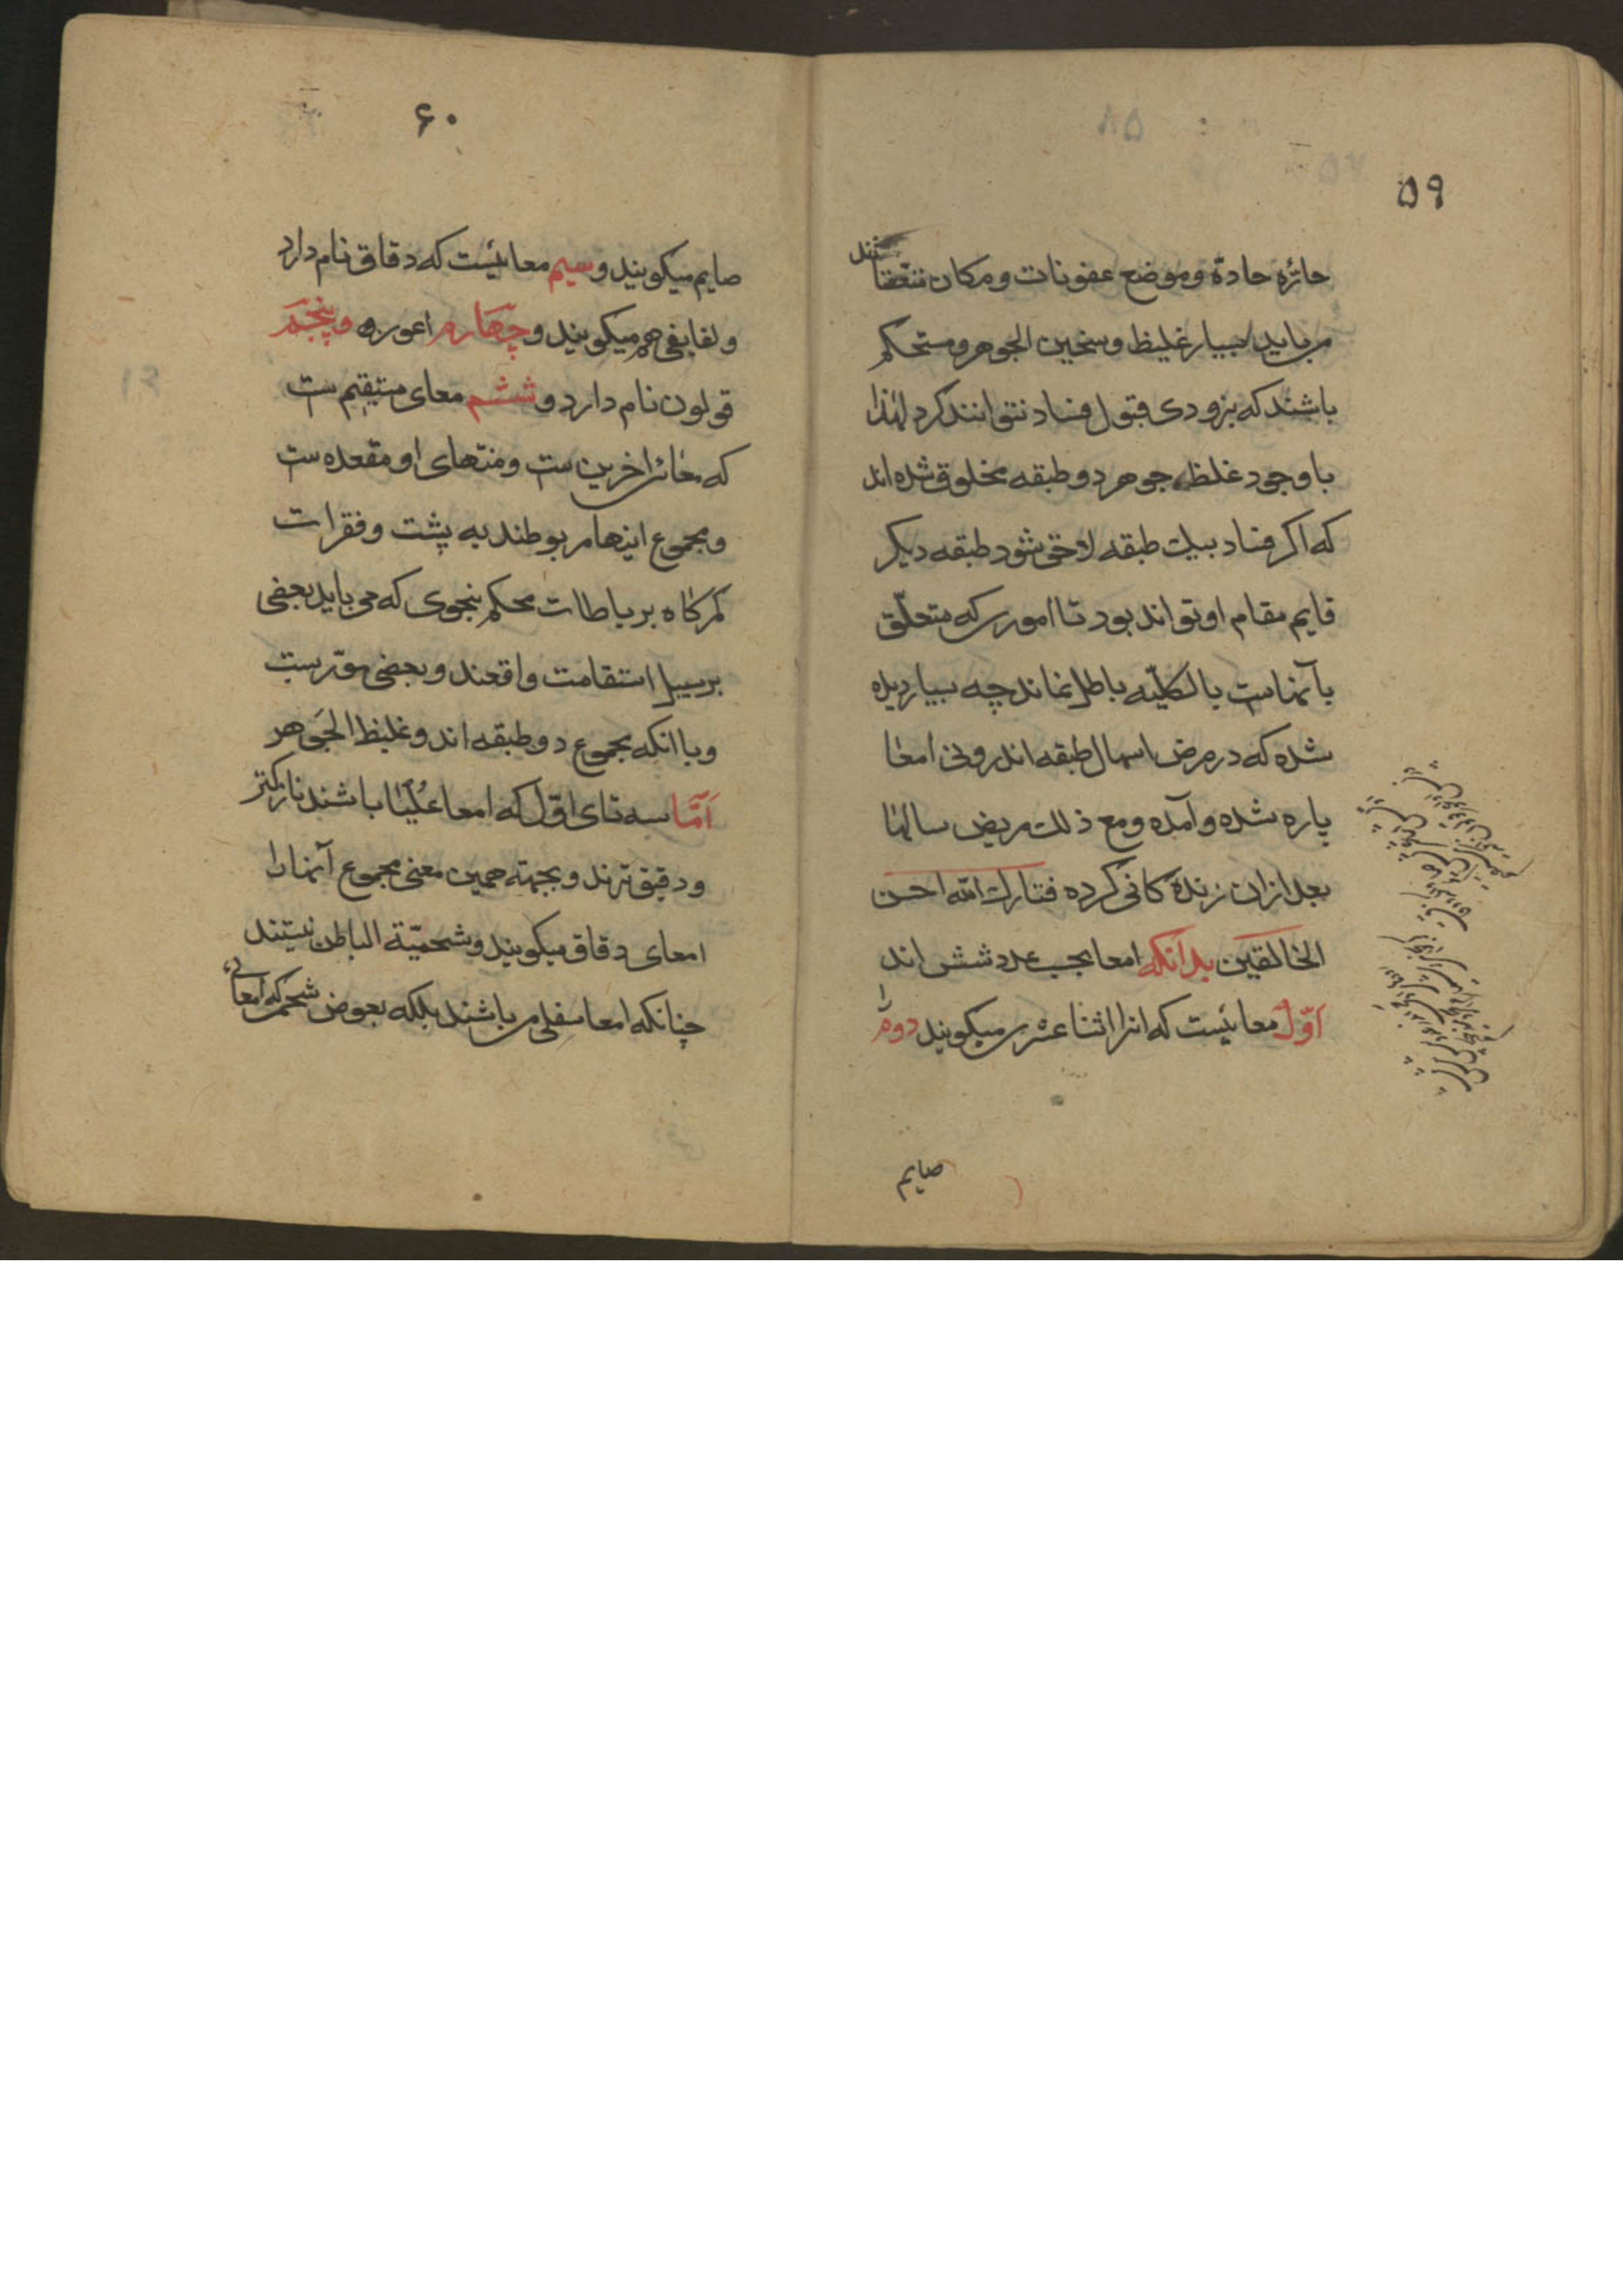 ۵۹
حائزه حادة و موضع عفونات و مکان
می باید بسیار غلیظ و سخین الجوهر و مستحکم
باشند که بزودی قبول فساد نتوانند کرد لهذا
با وجود غلظ جوهر دو طبقه مخلوق شده اند
که اکر فساد بیک طبقه لاحق شود طبقه دیکر
قایم مقام او تواند بود تا اموری که متعلّق
بآنهاست بالکلیّه باطل نماند چه بسیار دیده
شده که در مرض اسهال طبقه اندرونی امعا
پاره شده و آمده و مع ذلک مریض سالها
بعد از ان زندکانی کرده فتبارک الله احسن
الخالقین بدانکه امعا بحسب عدد شش اند
اوّل معائیست که انرا اثنا عشری میکویند دوم را
صایم
۶۰
صایم میکویند و سیم معائیست که دقاق نام دارد
و لفایفی هم میکویند و چهارم اعور و پنجم
قولون نام دارد و ششم معای مستقیم ست
که معائ اخرین ست و منتهای او مقعده ست
و مجموع اینها مربوطند به پشت و فقرات
کمرکاه برباطات محکم بنحوی که می باید بعضی
بر سبیل استقامت واقعند و بعضی مورّب
و با انکه مجموع دو طبقه اند و غلیظ الجوهر
امّا سه تای اوّل که امعا عُلیا باشند نازکتر
و دقیق ترند و بجهته همین معنی مجموع آنها را
امعای دقاق میکویند و شحمیّة الباطن نیستند
چنانکه امعا سفلی می باشند بلکه بعوض شحم که امعای